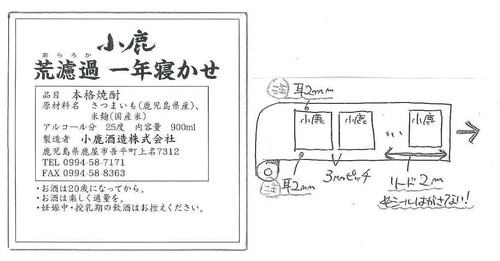 小鹿
あらろか
荒濾過 一年寝かせ
品目 本格焼酎
原材料名 さつまいも(鹿児島県産)、
米麹(国産米)
アルコール分 25度 内容量 900ml
製造者 小鹿酒造株式会社
鹿児島県鹿屋市吾平町上名7312
TEL 0994-58-7171
FAX 0994-58-8363
・お酒は20歳になってから。
・お酒は楽しく適量を。
・妊娠中・授乳期の飲酒はお控えください。
注 耳2mm
小鹿 小鹿 ... 小鹿
注 耳2mm
3mmピッチ
リード2m
※シールはがさない!